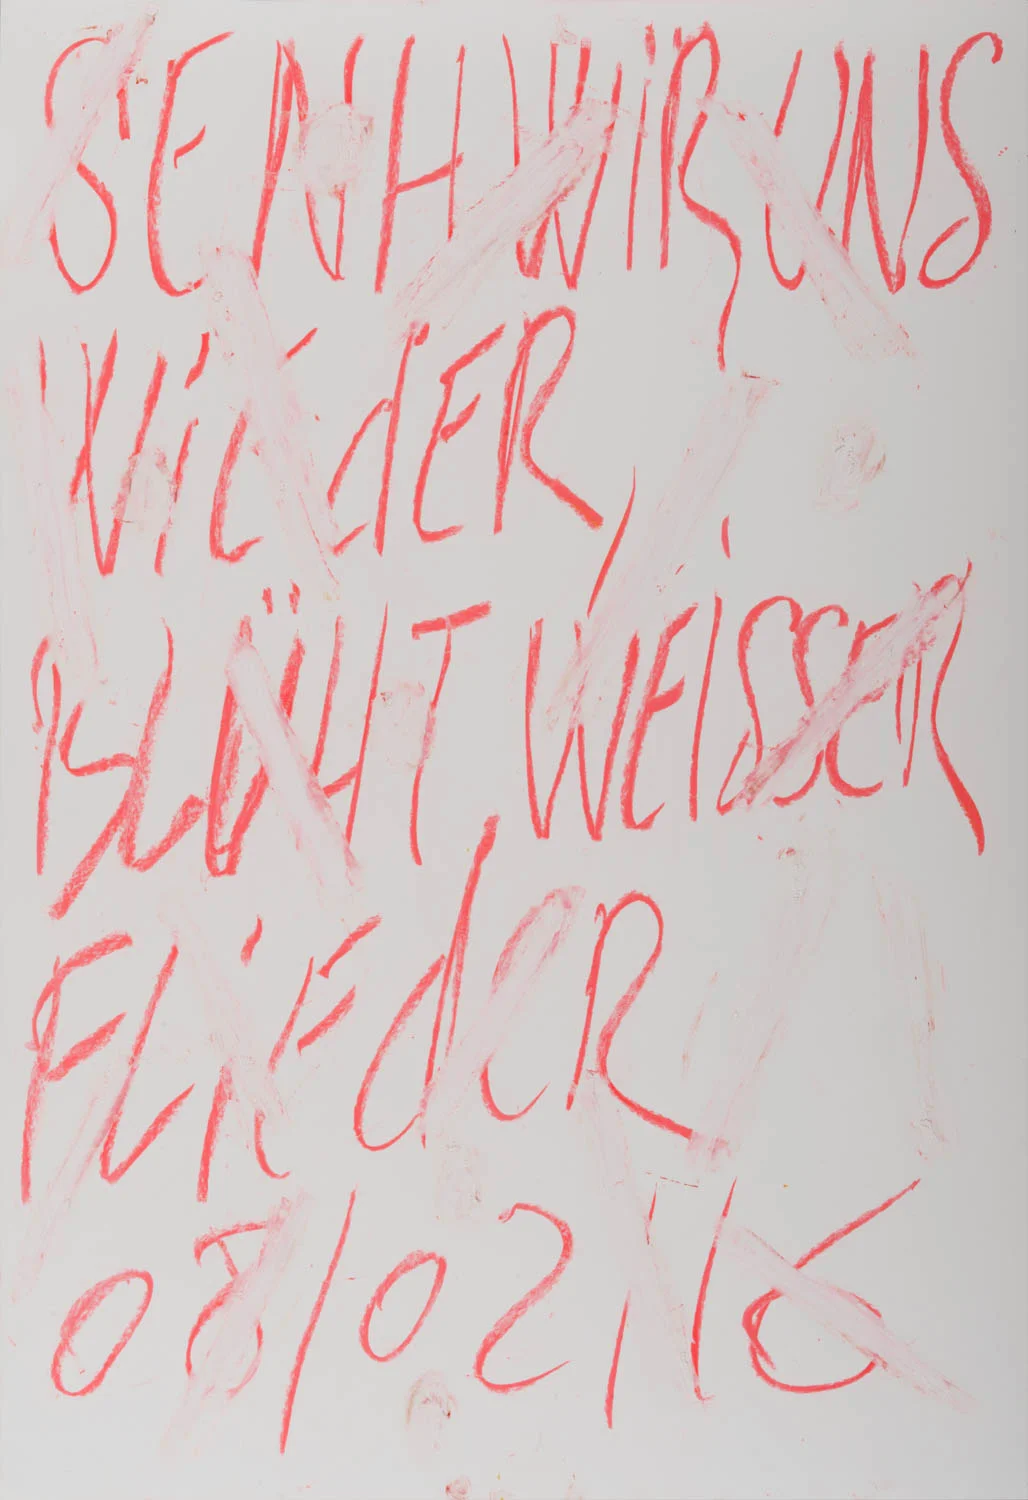 SEHN WIR UNS
WIEdER,
BLÜHT WEISSER
FLIEdER
08/02/16